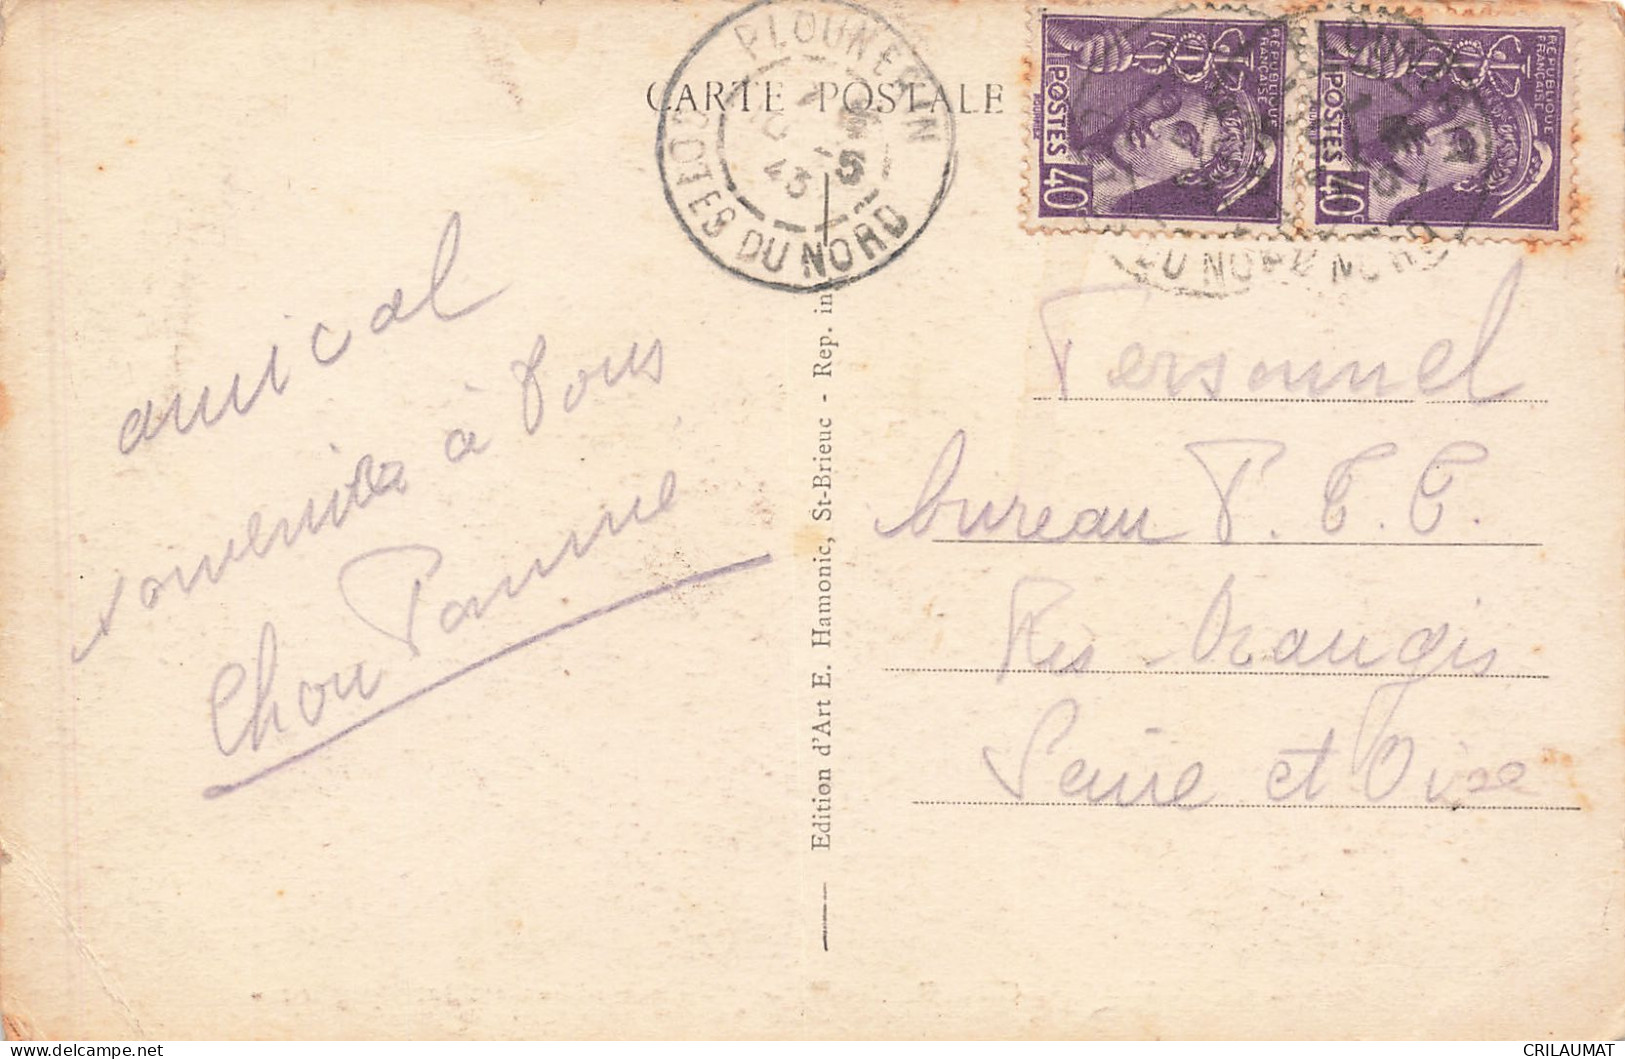 CARTE POSTALE
PLOUNERIN
COTES DU NORD
43
RÉPUBLIQUE FRANÇAISE
POSTES
40c
RÉPUBLIQUE FRANÇAISE
POSTES
40c
DU NORD
DU NORD
amical
souvenir à Tous
Edition d'Art E. Hamonic, St-Brieuc - Rep. in
Personnel
bureau P. T. T.
Ris-Orangis
Seine et Oise
CRILAUMAT